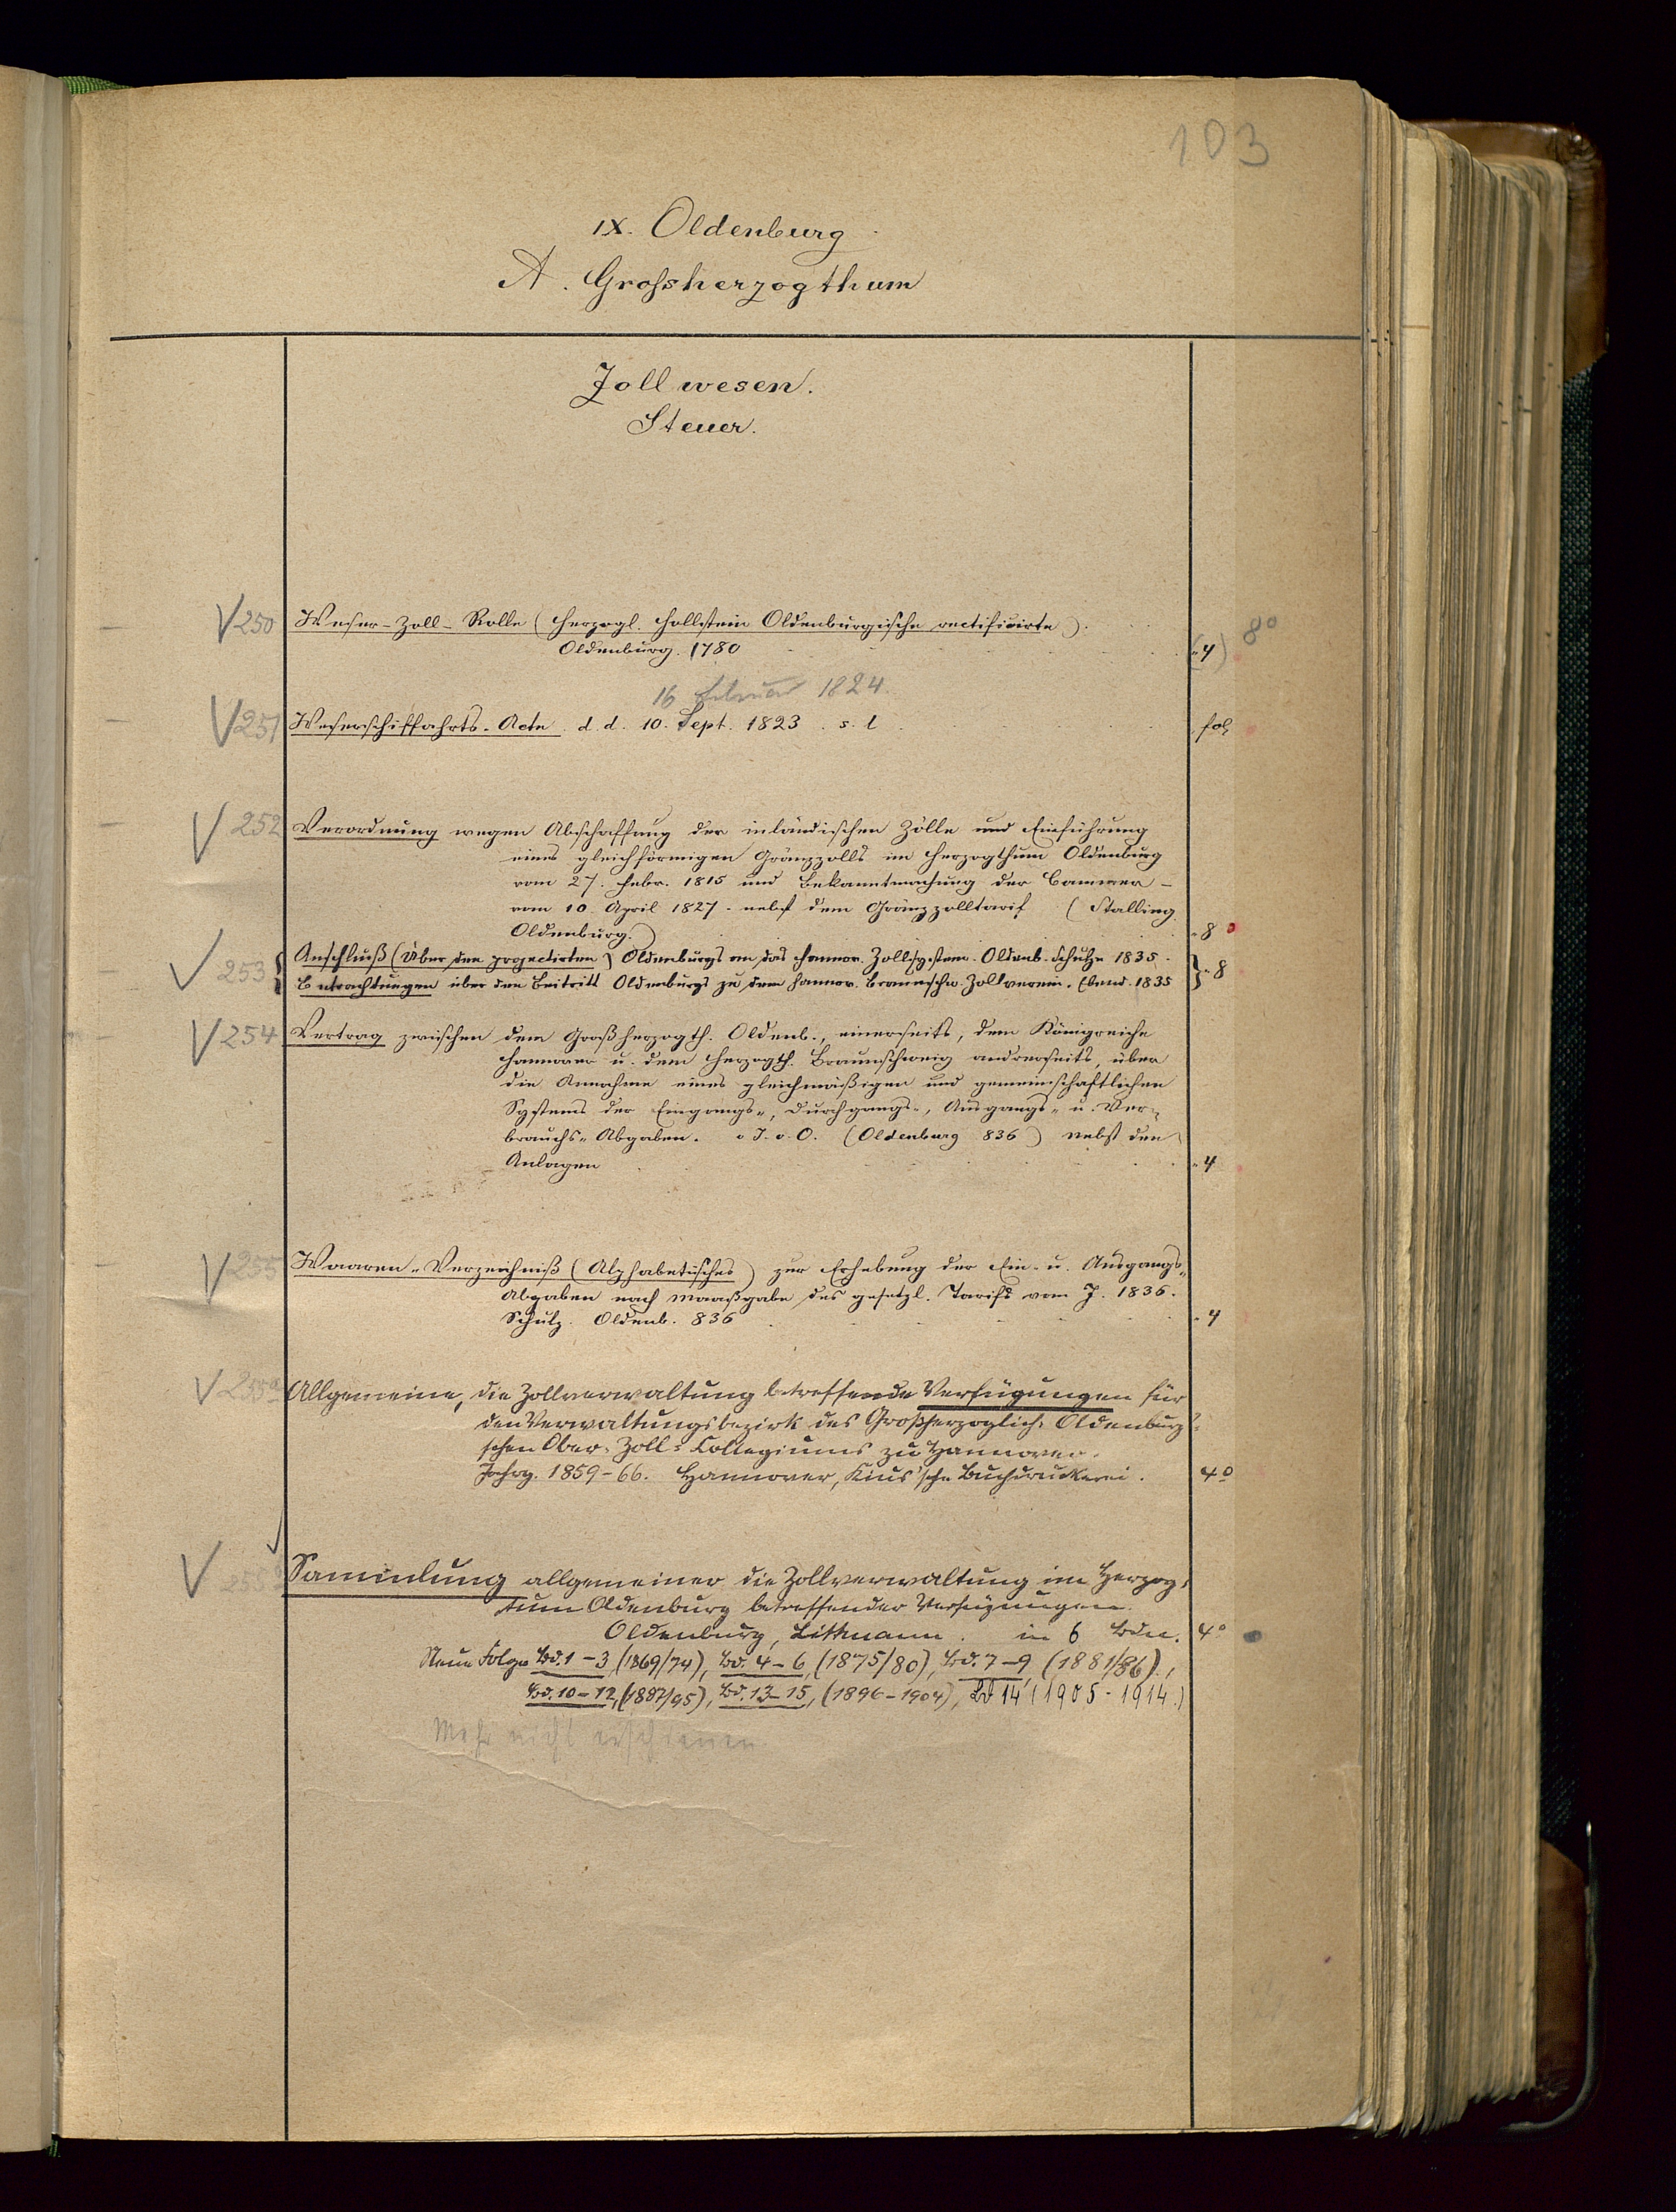 103
IX. Oldenburg
A. Grossherzogthum
Zollwesen.
Steuer.
250 Weser-Zoll-Rolle (Herzogl. Hollstein Oldenburgische rectificirte).
Oldenburg. 1780 (4) 8°
16 Februar 1824.
251 Weserschiffahrts-Acte d. d. 10. Sept. 1823 s. l fol
252 Verordnung wegen Abschaffung der inländischen Zölle und Einführung
eines gleichförmigen Gränzzolls im Herzogthum Oldenburg
vom 27. Febr. 1815 und Bekanntmachung der Cammer
vom 10. April 1827 nebst dem Gränzzolltarif (Stalling
Oldenburg.) 8
253 Anschluß (Über den projectirten) Oldenburgs an das hannov. Zollsystem. Oldenb. Schulze 1835.
Betrachtungen über den Beitritt Oldenburgs zu dem hannov. Braunschw. Zollverein. Ebend. 1835 8
254 Vertrag zwischen dem Großherzogth. Oldenb., einerseits, dem Königreiche
Hannover u. dem Herzogth. Braunschweig andrerseits, über
die Annahme eines gleichmäßigen und gemeinschaftlichen
Systems der Eingangs-, Durchgangs-, Ausgangs- u. Ver-
brauchs-Abgaben. o. J. o. O. (Oldenburg 836) nebst den
Anlagen 4
255 Waaren-Verzeichniß (Alphabetisches) zur Erhebung der Ein- u. Ausgangs-
Abgaben nach Maaßgabe des gesetzl. Tarifs vom J. 1836.
Schulz. Oldenb. 836 4
255a Allgemeine, die Zollverwaltung betreffende Verfügungen für
den Verwaltungsbezirk des Großherzoglich-Oldenburg-
schen Ober-Zoll-Collegiums zu Hannover.
Jahrg. 1859-66. Hannover, Kius'sche Buchdruckerei. 4°
255 Sammlung allgemeiner die Zollverwaltung im Herzog-
tum Oldenburg betreffender Verfügungen.
Oldenburg, Littmann. in 6 Bdn. 4°
Neue Folge Bd. 1-3 (1869/74), Bd. 4-6, (1875/80), Bd. 7-9 (1881/86),
Bd. 10-12, (1887/95), Bd. 13-15, (1896-1904), Bd 14 (1905-1914.)
Mehr nicht erschienen